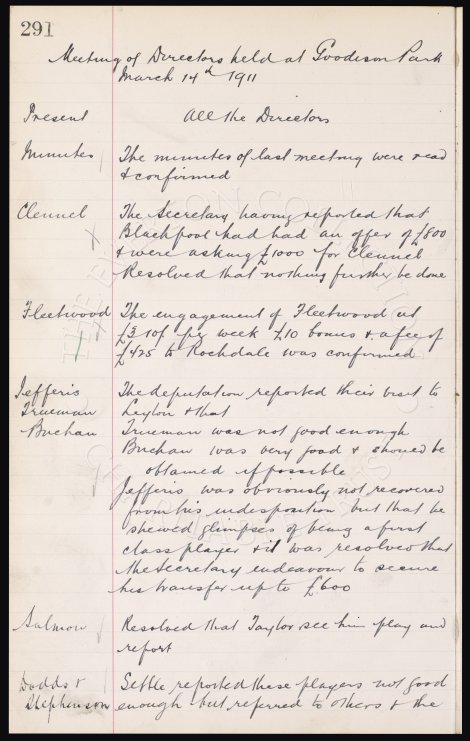 291
Meeting of Directors held at Goodison Park
March 14th 1911
Present All the Directors
Minutes The minutes of last meeting were read
& confirmed
Clennel The Secretary having reported that
Blackpool had had an offer of £800
& were asking £1000 for Clennel
Resolved that nothing further be done
Fleetwood The engagement of Fleetwood at
£3 10/- per week £10 bonus & a fee of
£425 to Rochdale was confirmed
Jefferis The deputation reported their visit to
Trueman Leyton & that
Buchan Trueman was not good enough
Buchan was very good & should be
obtained if possible
Jefferis was obviously not recovered
from his indisposition but that he
shewed glimpses of being a first
class player & it was resolved that
the Secretary endeavour to secure
his transfer up to £600
Salmon Resolved that Taylor see him play and
report
Dodds & Settle reported these players not good
Stephenson enough but referred to others & the